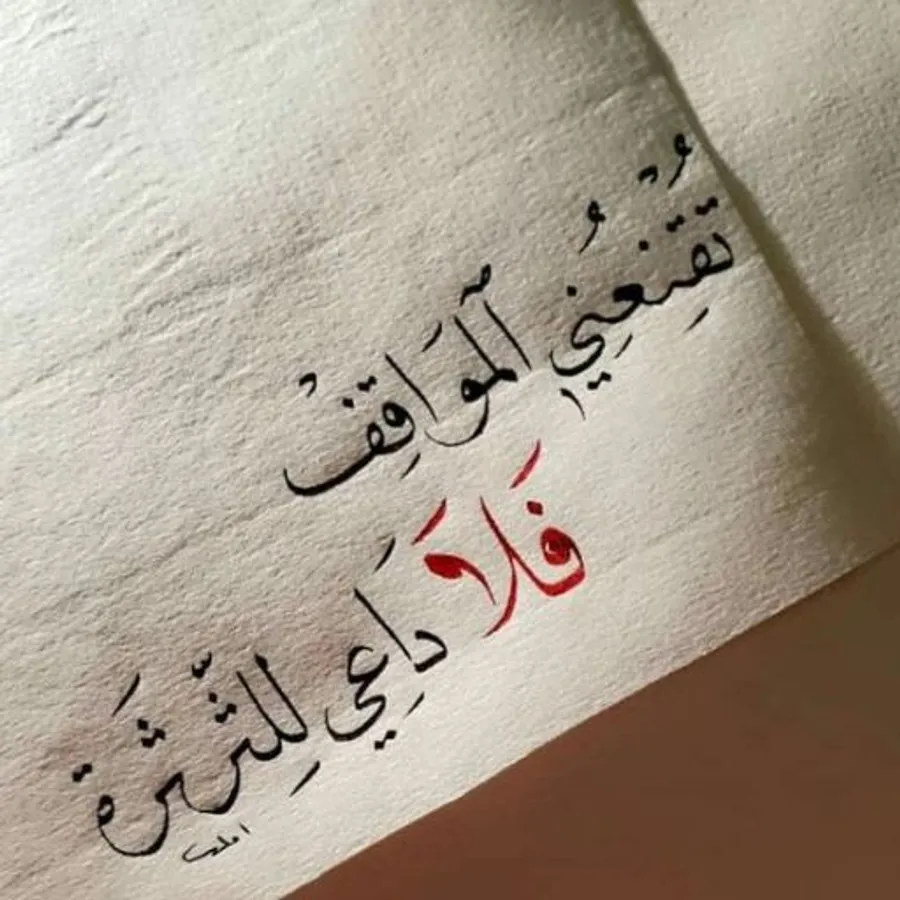 تُقْنِعُنِي ٱلْمَوَاقِفُ
فَلَا دَاعِي لِلثَّرْثَرَة